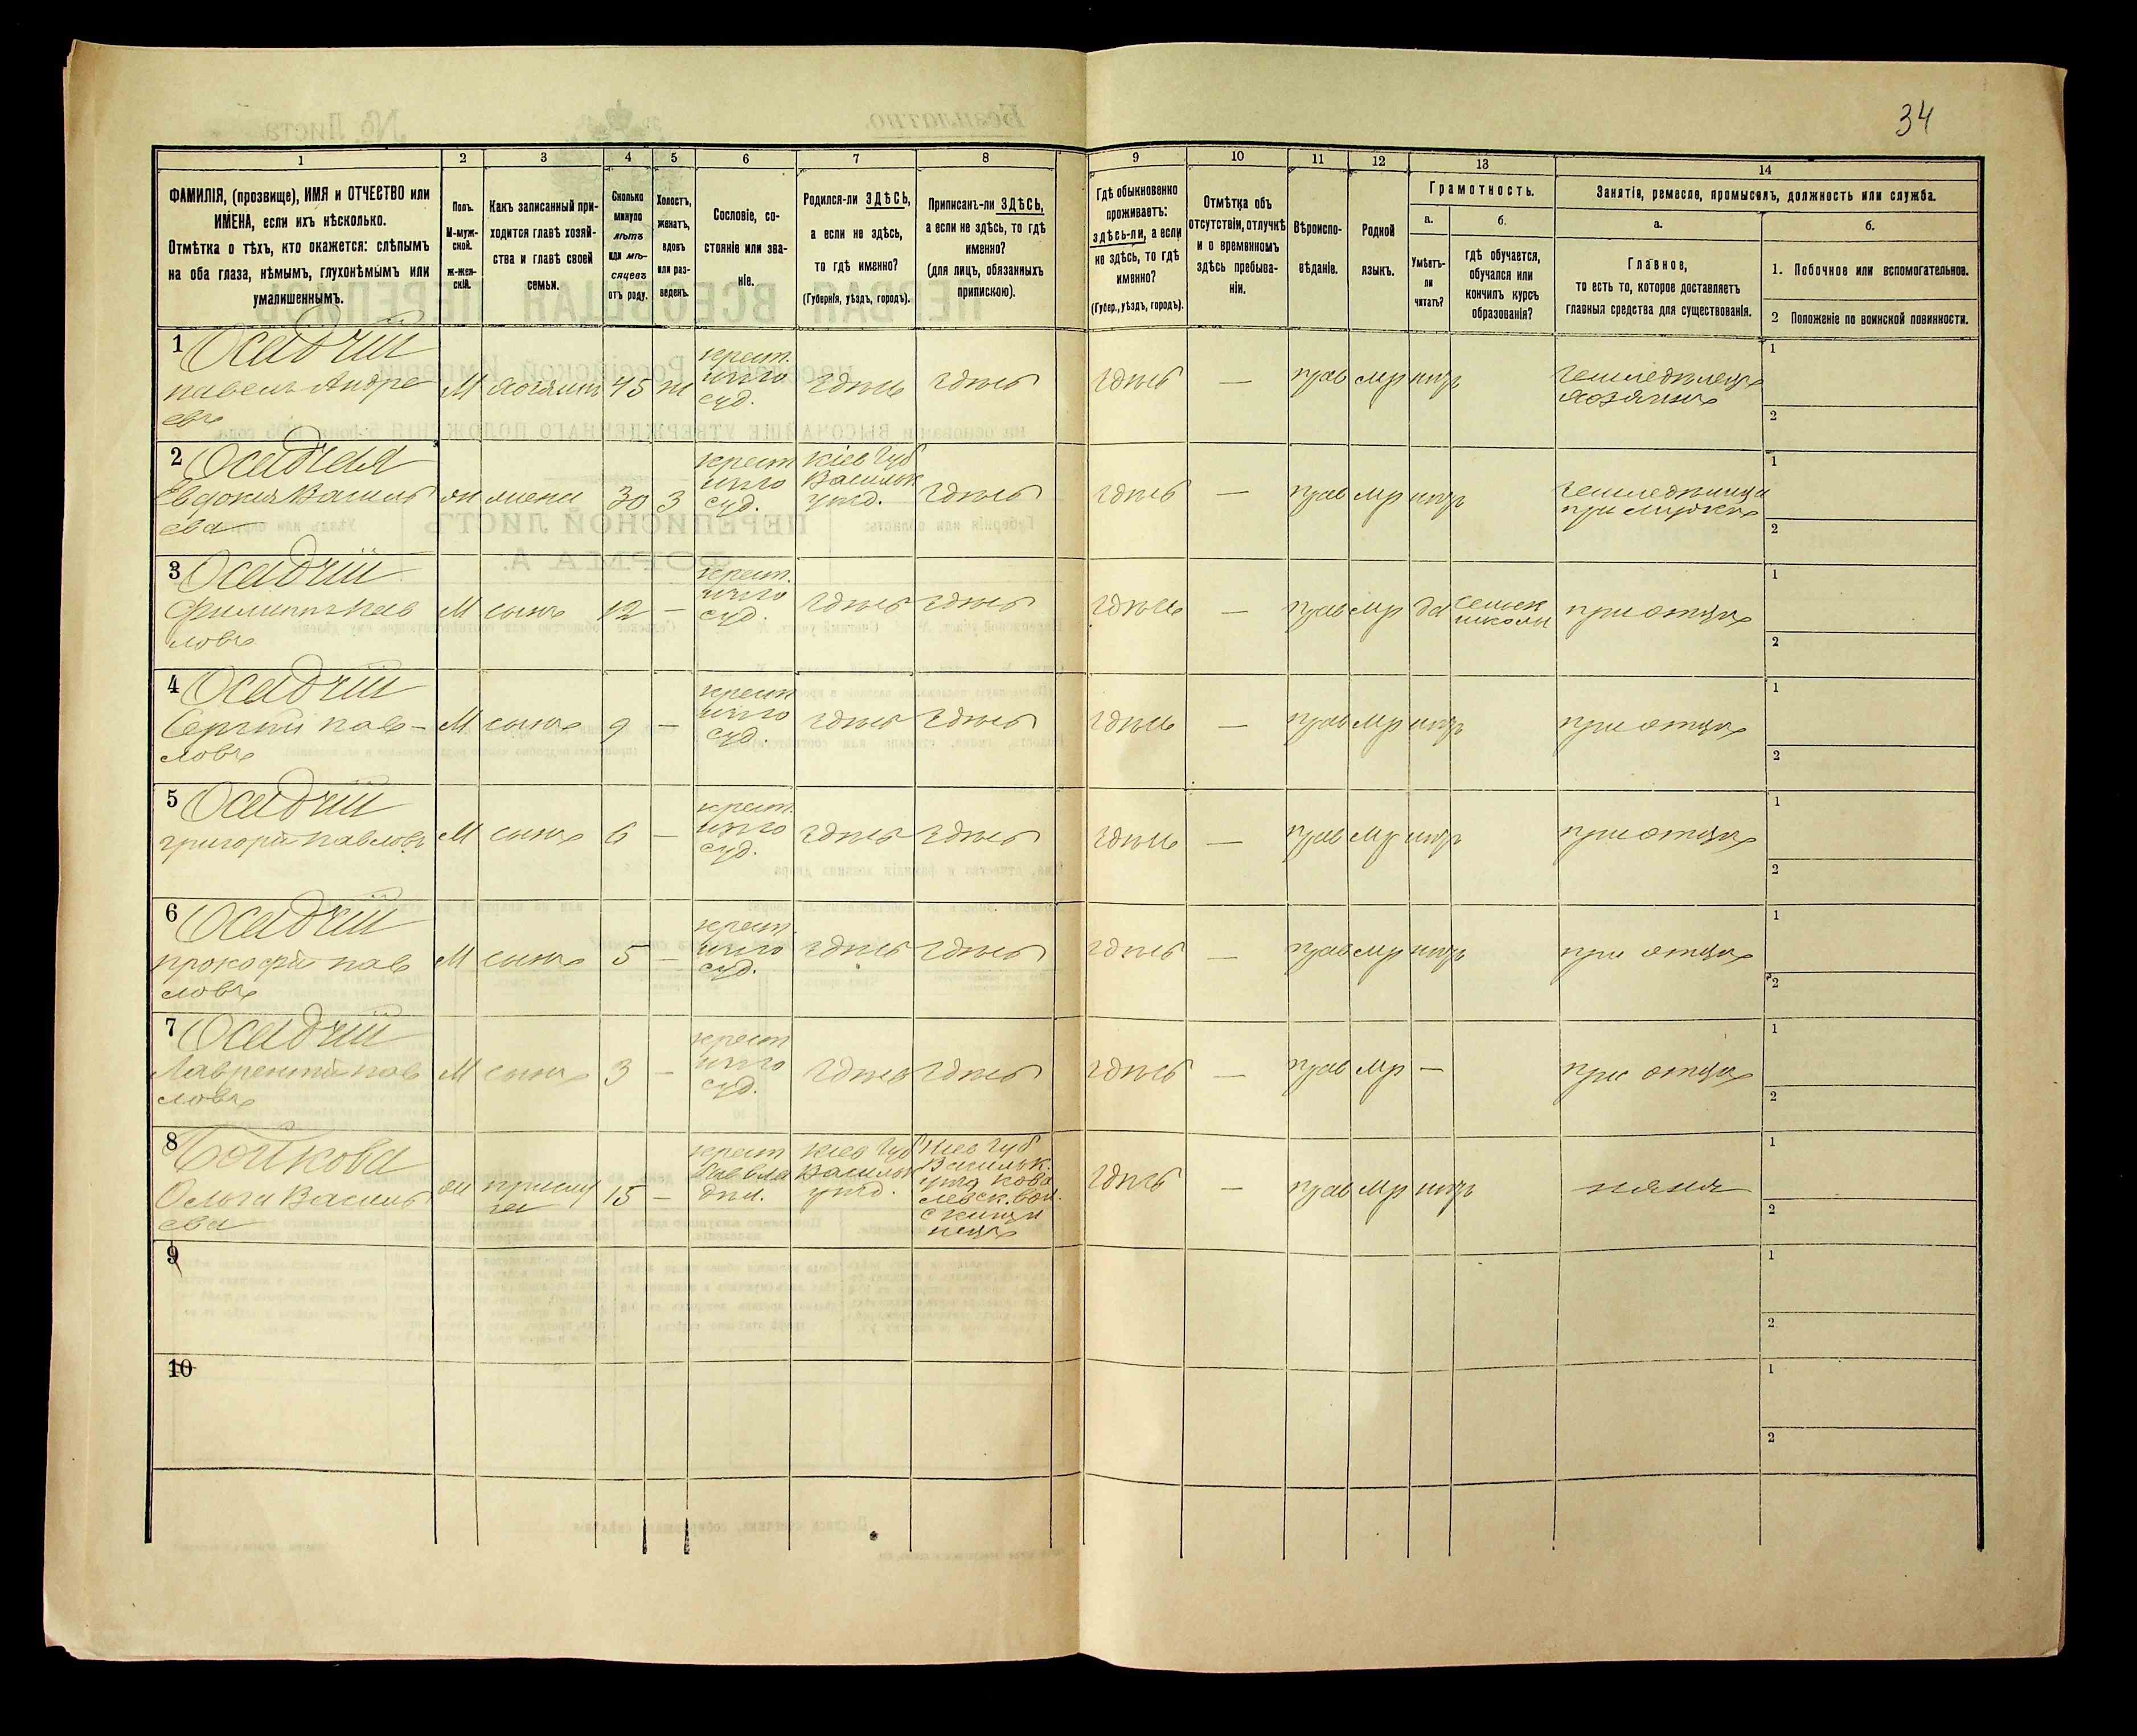 34
1
2
3
4
5
6
7
8
9
10
11
12
13
14
ФАМИЛІЯ, (прозвище), ИМЯ и ОТЧЕСТВО или
ИМЕНА, если ихъ нѣсколько.
Отмѣтка о тѣхъ, кто окажется: слѣпымъ
на оба глаза, нѣмымъ, глухонѣмымъ или
умалишеннымъ.
Полъ.
М-муж-
ской.
ж-жен-
скій.
Какъ записанный при-
ходится главѣ хозяй-
ства и главѣ своей
семьи.
Сколько
минуло
лѣтъ
или мѣ-
сяцевъ
отъ роду.
Холостъ,
женатъ,
вдовъ
или раз-
веденъ.
Сословіе, со-
стояніе или зва-
ніе.
Родился-ли ЗДѢСЬ,
а если не здѣсь,
то гдѣ именно?
(Губернія, уѣздъ, городъ).
Приписанъ-ли ЗДѢСЬ,
а если не здѣсь, то гдѣ
именно?
(для лицъ, обязанныхъ
припискою).
Гдѣ обыкновенно
проживаетъ:
здѣсь-ли, а если
не здѣсь, то гдѣ
именно?
(Губер., уѣздъ, городъ).
Отмѣтка объ
отсутствіи, отлучкѣ
и о временномъ
здѣсь пребыва-
ніи.
Вѣроиспо-
вѣданіе.
Родной
языкъ.
Грамотность.
а.
Умѣетъ-
ли
читать?
б.
гдѣ обучается,
обучался или
кончилъ курсъ
образованія?
Занятіе, ремесло, промыселъ, должность или служба.
а.
Главное,
то есть то, которое доставляетъ
главныя средства для существованія.
б.
1. Побочное или вспомогательное.
2 Положеніе по воинской повинности.
1 Осадчій
Павелъ Андре
евъ
М хозяинъ 45 ж
крест.
суд.
здѣсь здѣсь здѣсь — прав мр нѣтъ
земледѣлецъ
хозяинъ
1
2
2 Осадчая
Евдокия Василь
ева
ж жена 30 З
крест
суд.
Кіев губ
Васильк
уѣзд.
здѣсь здѣсь — прав мр нѣтъ
земледѣлица
при мужѣ
1
2
3 Осадчій
Филиппъ Пав
ловъ
М сынъ 12 —
крест.
суд.
здѣсь здѣсь здѣсь — прав мр да
сельск
школы
при отцѣ
1
2
4 Осадчій
Сергій Пав-
ловъ
М сынъ 9 —
крест
суд.
здѣсь здѣсь здѣсь — прав мр нѣтъ
при отцѣ
1
2
5 Осадчій
Григорій Павловъ
М сынъ 6 —
крест.
суд.
здѣсь здѣсь здѣсь — прав мр нѣтъ
при отцѣ
1
2
6 Осадчій
Прокофій Пав
ловъ
М сынъ 5 —
крест.
суд.
здѣсь здѣсь здѣсь — прав мр нѣтъ
при отцѣ
1
2
7 Осадчій
Лаврентій Пав
ловъ
М сынъ 3 —
крест
суд.
здѣсь здѣсь здѣсь — прав мр —
при отцѣ
1
2
8 Бойкова
Ольга Василь
ева
ж прислу
га
15 —
крест
Кіев губ
Васильк
уѣзд.
Кіев губ
Васильк.
уѣзд Кова
левск. вол.
здѣсь — прав мр нѣтъ
няня
1
2
9
1
2
10
1
2